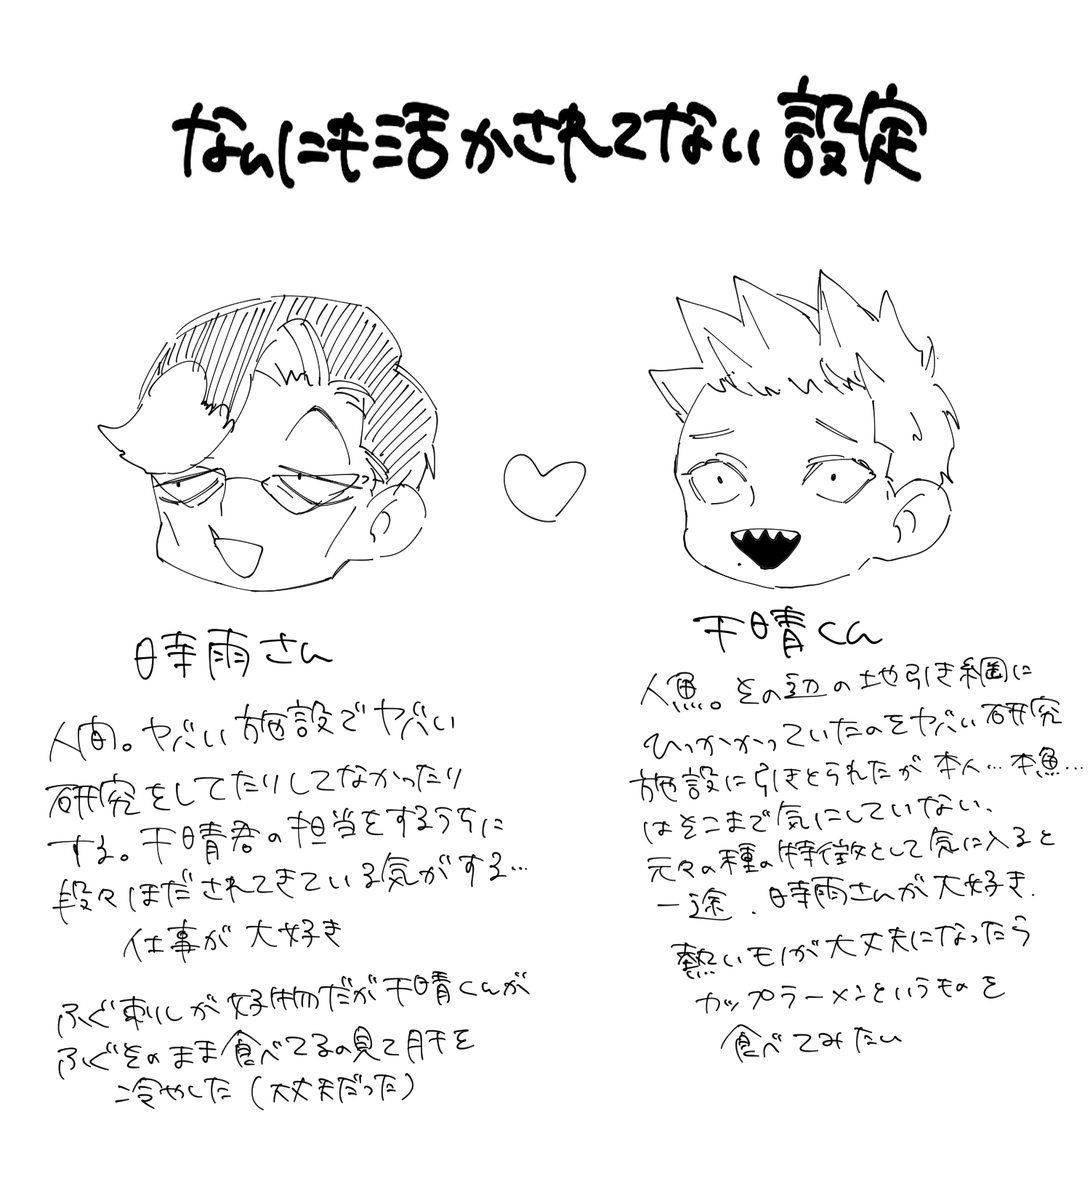 なんにも活かされてない設定
時雨さん
人間。ヤバい施設でヤバい
研究をしてたりしてなかったり
する。干晴君の担当をするうちに
段々ほだされてきている気がする…
仕事が大好き
ふぐ刺しが好物だが干晴くんが
ふぐそのまま食べてるの見て肝を
冷やした(大丈夫だった)
干晴くん
人魚。その辺の地引き網に
ひっかかっていたのをヤバい研究
施設に引きとられたが本人…本魚…
はそこまで気にしていない、
元々の種の特徴として気に入ると
一途.時雨さんが大好き.
熱いモノが大丈夫になったら
カップラーメンというものを
食べてみたい